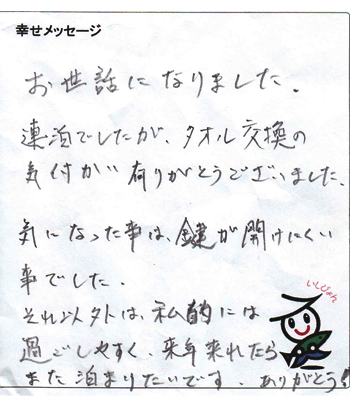 幸せメッセージ
お世話になりました.
連泊でしたが、タオル交換の
気付が 有りがとうございました.
気になった事は、鍵が開けにくい
事でした.
いしじゃん
それ以外は、私的には
過ごしやすく、来年来れたら
また泊まりたいです. ありがとう!